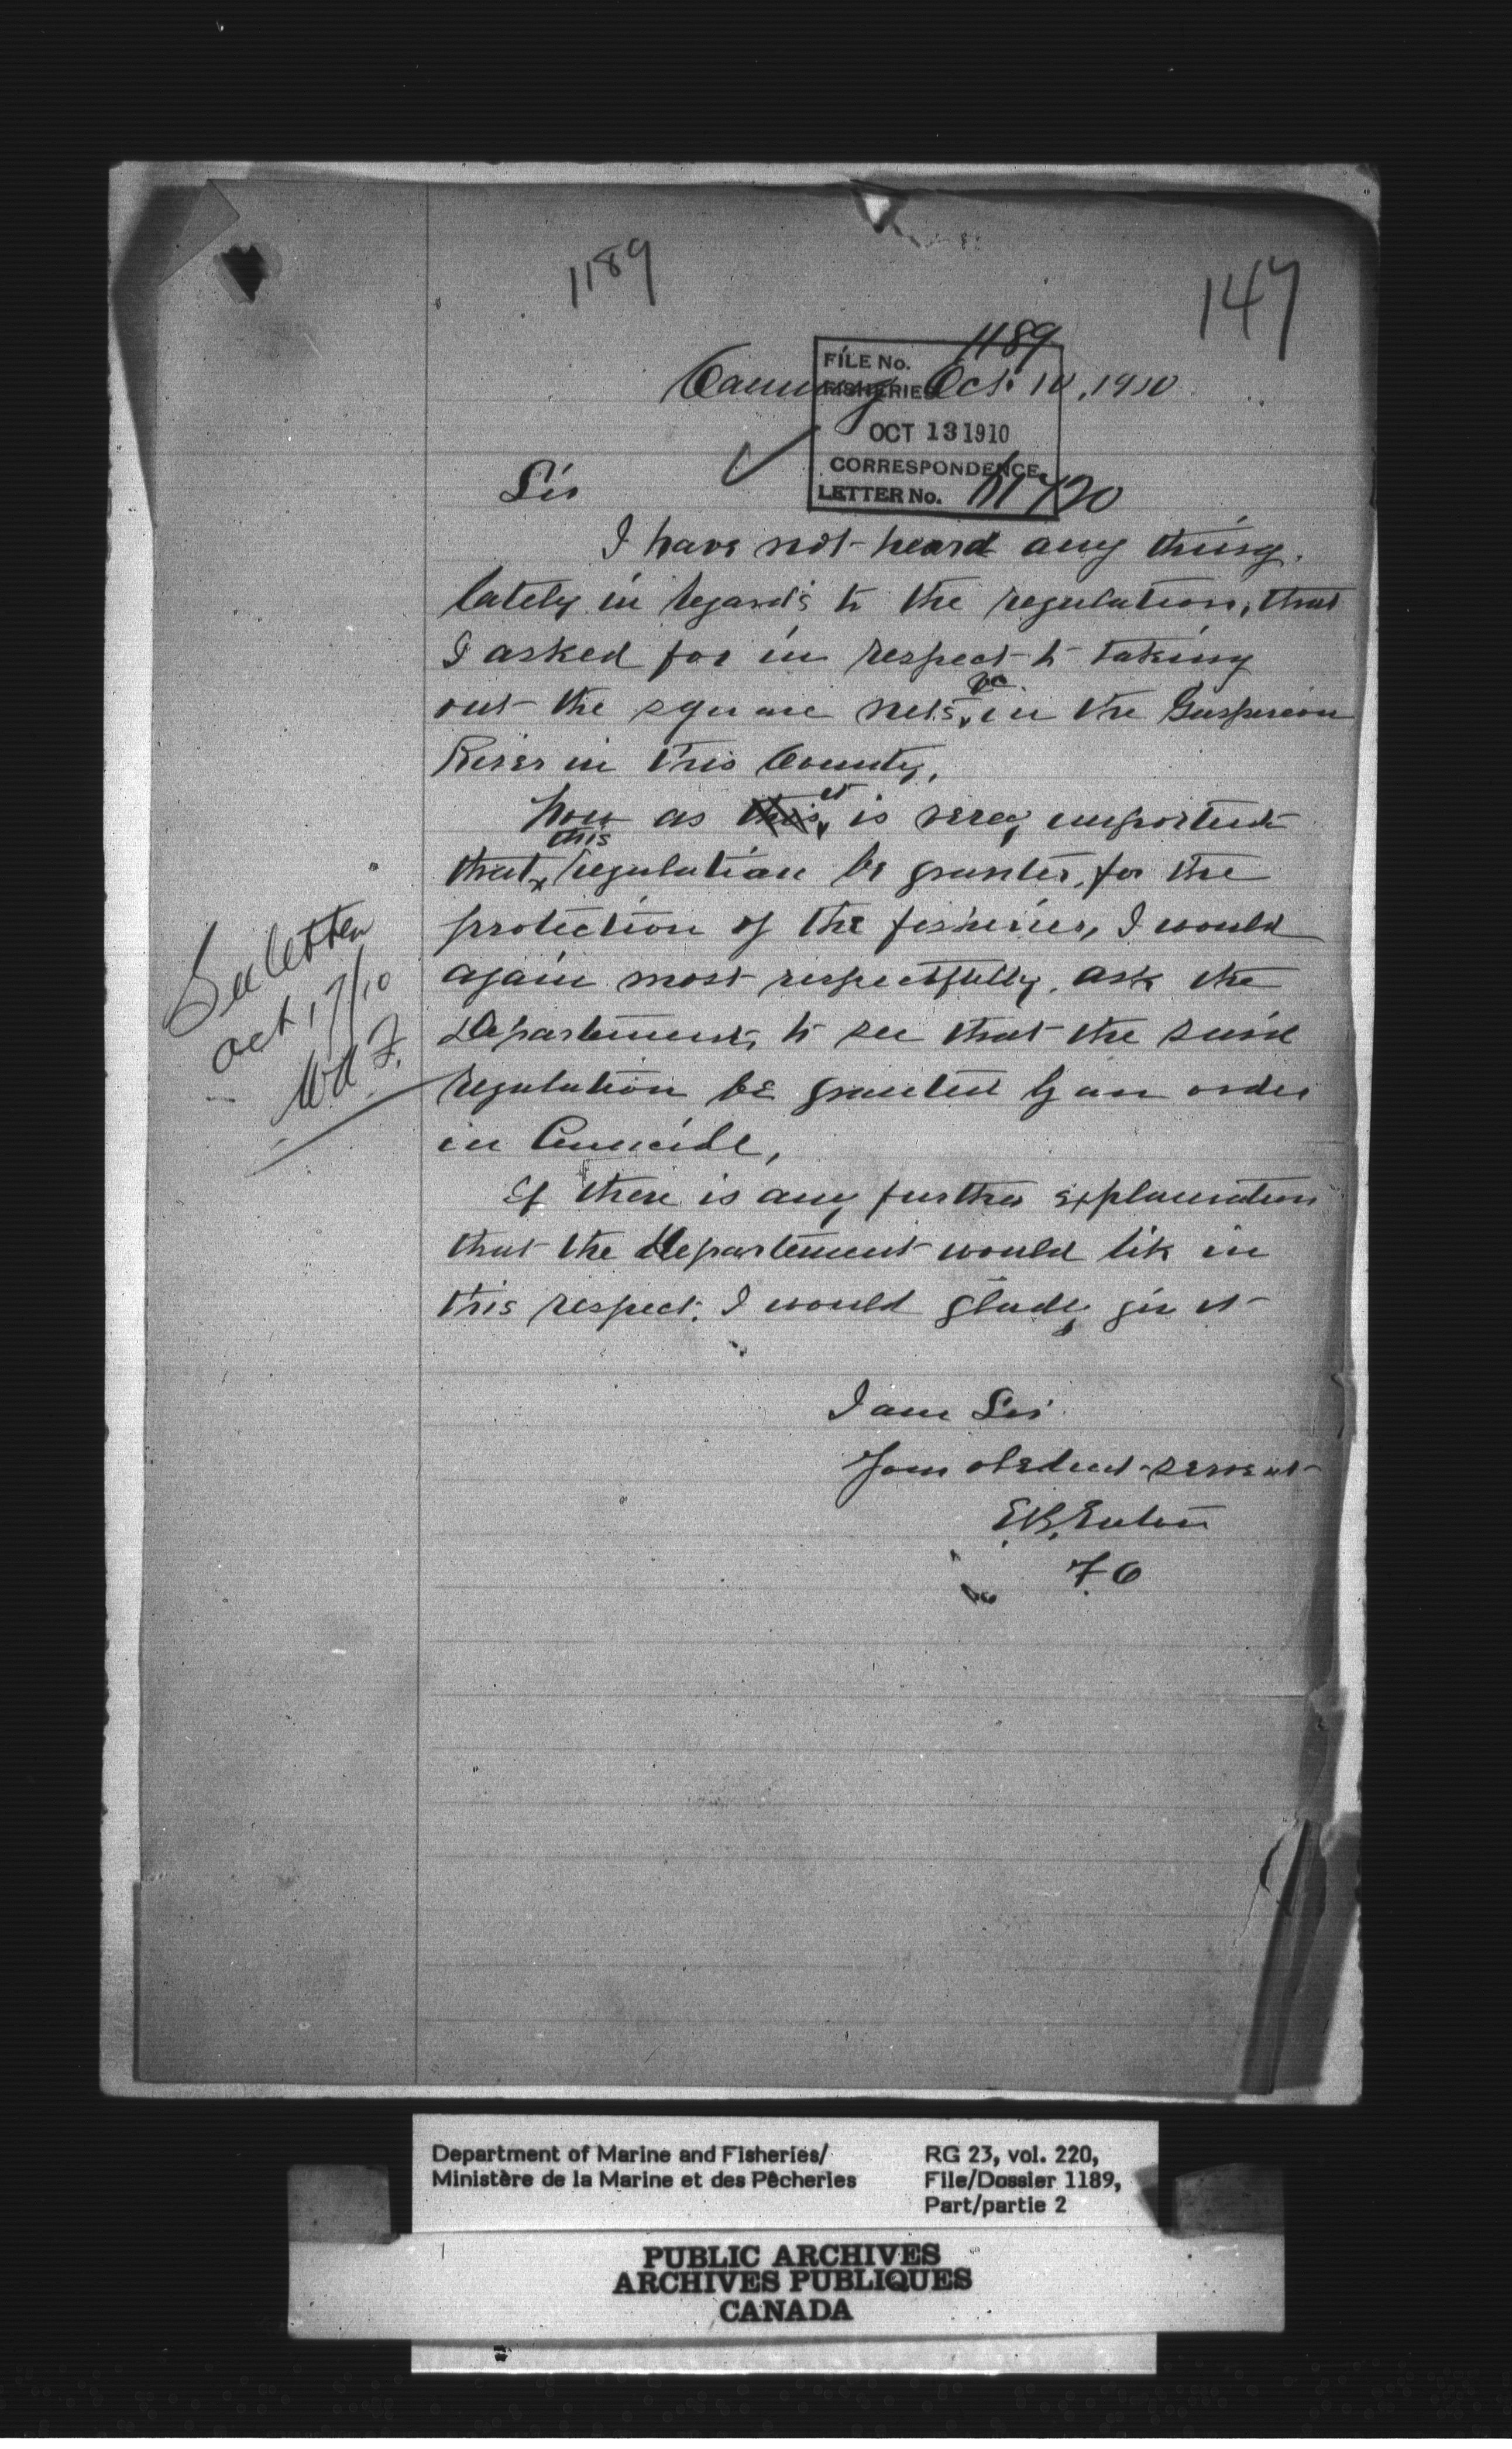 1189
147
FILE No. 1189
FISHERIES
OCT 13 1910
CORRESPONDENCE
LETTER No. 11720
Canning Oct. 10, 1910
Sir
I have not heard any thing.
lately in regards to the regulation, that
I asked for in respect to taking
out the square nets, &c in the Gaspereau
River in this County,
Now as it is very important
that this regulation be granted, for the
protection of the fisheries, I would
again most respectfully, ask the
Department, to see that the said
regulation be granted by an order
in Council,
If there is any further explanation
that the Department would lik in
this respect. I would gladly giv it
I am Sir
Your obedient servent
E.B. Eaton
F.O
See letter
Oct 17/10
W.A F.
Department of Marine and Fisheries/
Ministère de la Marine et des Pêcheries
RG 23, vol. 220,
File/Dossier 1189,
Part/partie 2
PUBLIC ARCHIVES
ARCHIVES PUBLIQUES
CANADA